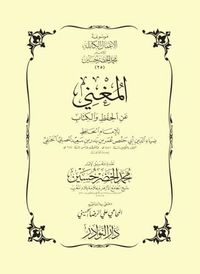 موسوعة
الأعمال الكاملة
للإمام
محمد الخضر حسين
(٢٥)
المغني
عن الحفظ والكتاب
للإمام الحافظ
ضياء الدين أبي حفص عمر بن بدر بن سعيد الموصلي الحنفي
محمد الخضر حسين
المحامي علي الرضا الحسيني
دار النوادر